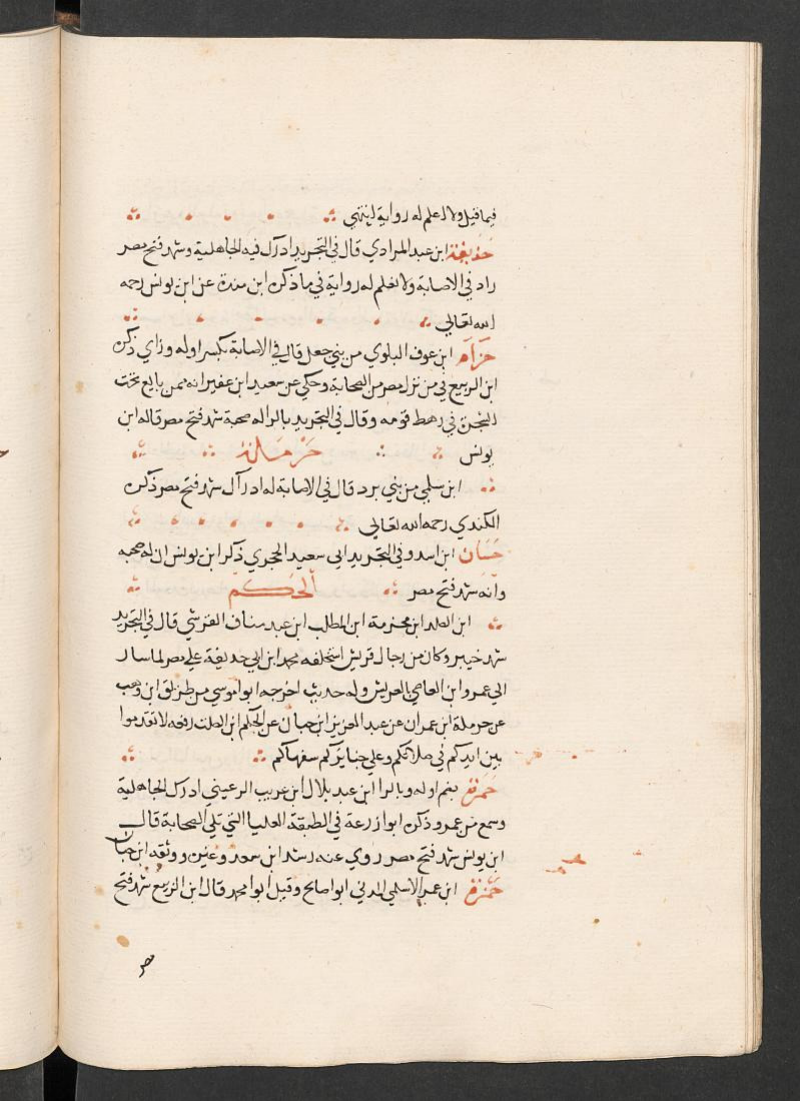 فيما قيل ولا اعلم له رواية انتهي
حذيفة ابن عبد المرادي قال في التجريد ادرك فيه الجاهلية وشهد فتح مصر
زاد في الاصابة ولا نعلم له رواية في ما ذكره ابن مندة عن ابن يونس رحمه
الله تعالي
حزام ابن عوف البلوي من بني جعل قال في الاصابة بكسر اوله وزاي ذكره
ابن الربيع في من نزل مصر من الصحابة وحكي عن سعيد ابن عفير انه ممن بايع تحت
الشجرة في رهط قومه وقال في التجريد بالرا له صحبة شهد فتح مصر قاله ابن
يونس حرملة
ابن سلمي من بني برد قال في الاصابة له ادراك شهد فتح مصر ذكره
الكندي رحمه الله تعالي
حسان ابن اسد وفي التجريد ابي سعيد الحجري ذكر ابن يونس ان له صحبه
وانه شهد فتح مصر الحكم
ابن الصلد ابن مخرمة ابن المطلب ابن عبد مناف القرشي قال في التجريد
شهد خيبر وكان من رجال قريش استخلفه محمد ابن ابي حذيفة علي مصر لما سار
الي عمرو ابن العاصي بالعريش وله حديث اخرجه ابو موسي من طريق ابن وهب
عن حرملة ابن عمران عن عبد العزيز ابن حيان عن الحكم ابن الصلت رفعه لا تقدموا
بين ايديكم في صلاتكم وعلي جنايزكم سفهاكم
حمرة بضم اوله وبالرا ابن عبد بلال ابن عريب الرعيني ادرك الجاهلية
وسمع من عمر وذكره ابوا زرعة في الطبقة العليا التي تلي الصحابة قال
ابن يونس شهد فتح مصر روي عنه رشد ابن سعد وغيره ووثقه ابن حبان
حمزة ابن عمر الاسلمي المدني ابوا صالح وقيل ابوا محمد قال ابن الربيع شهد فتح
مصر